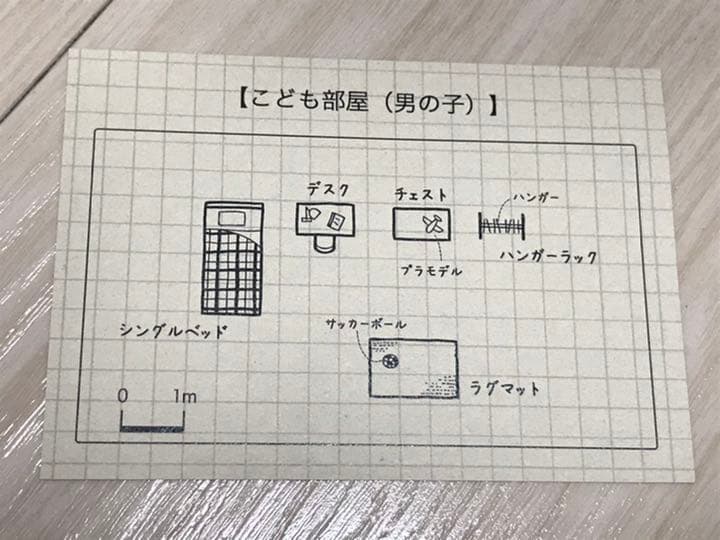 【こども部屋（男の子）】
デスク
チェスト
ハンガー
ハンガーラック
プラモデル
シングルベッド
サッカーボール
ラグマット
0 1m